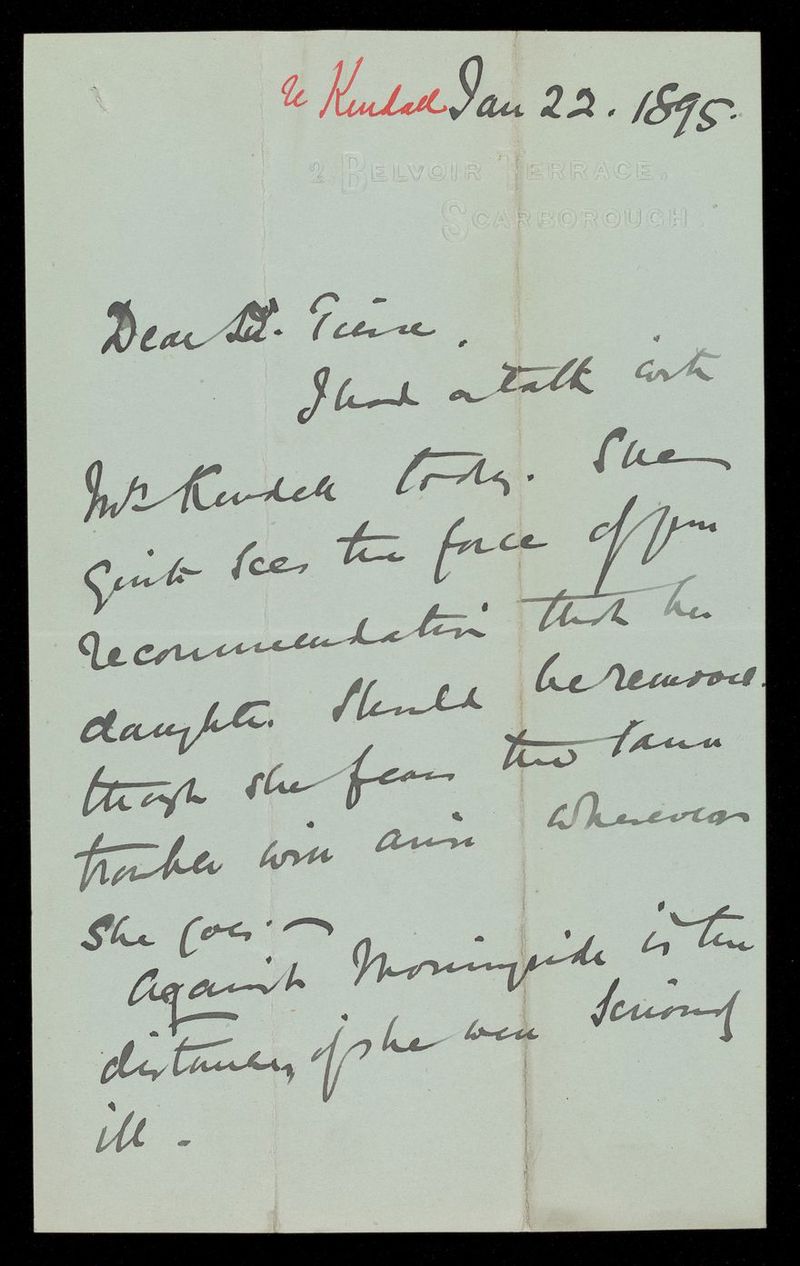 re Kendall Jan 22. 1895.
2 BELVOIR TERRACE.
SCARBOROUGH.
Dear Dr. Pierce.
I had a talk with
Mrs Kendall today. She
quite sees the force of your
recommendation that her
daughter should be removed
though she fears the same
troubles will arise wherever
she goes. —
Against Morningside is the
distance, if she were seriously
ill -